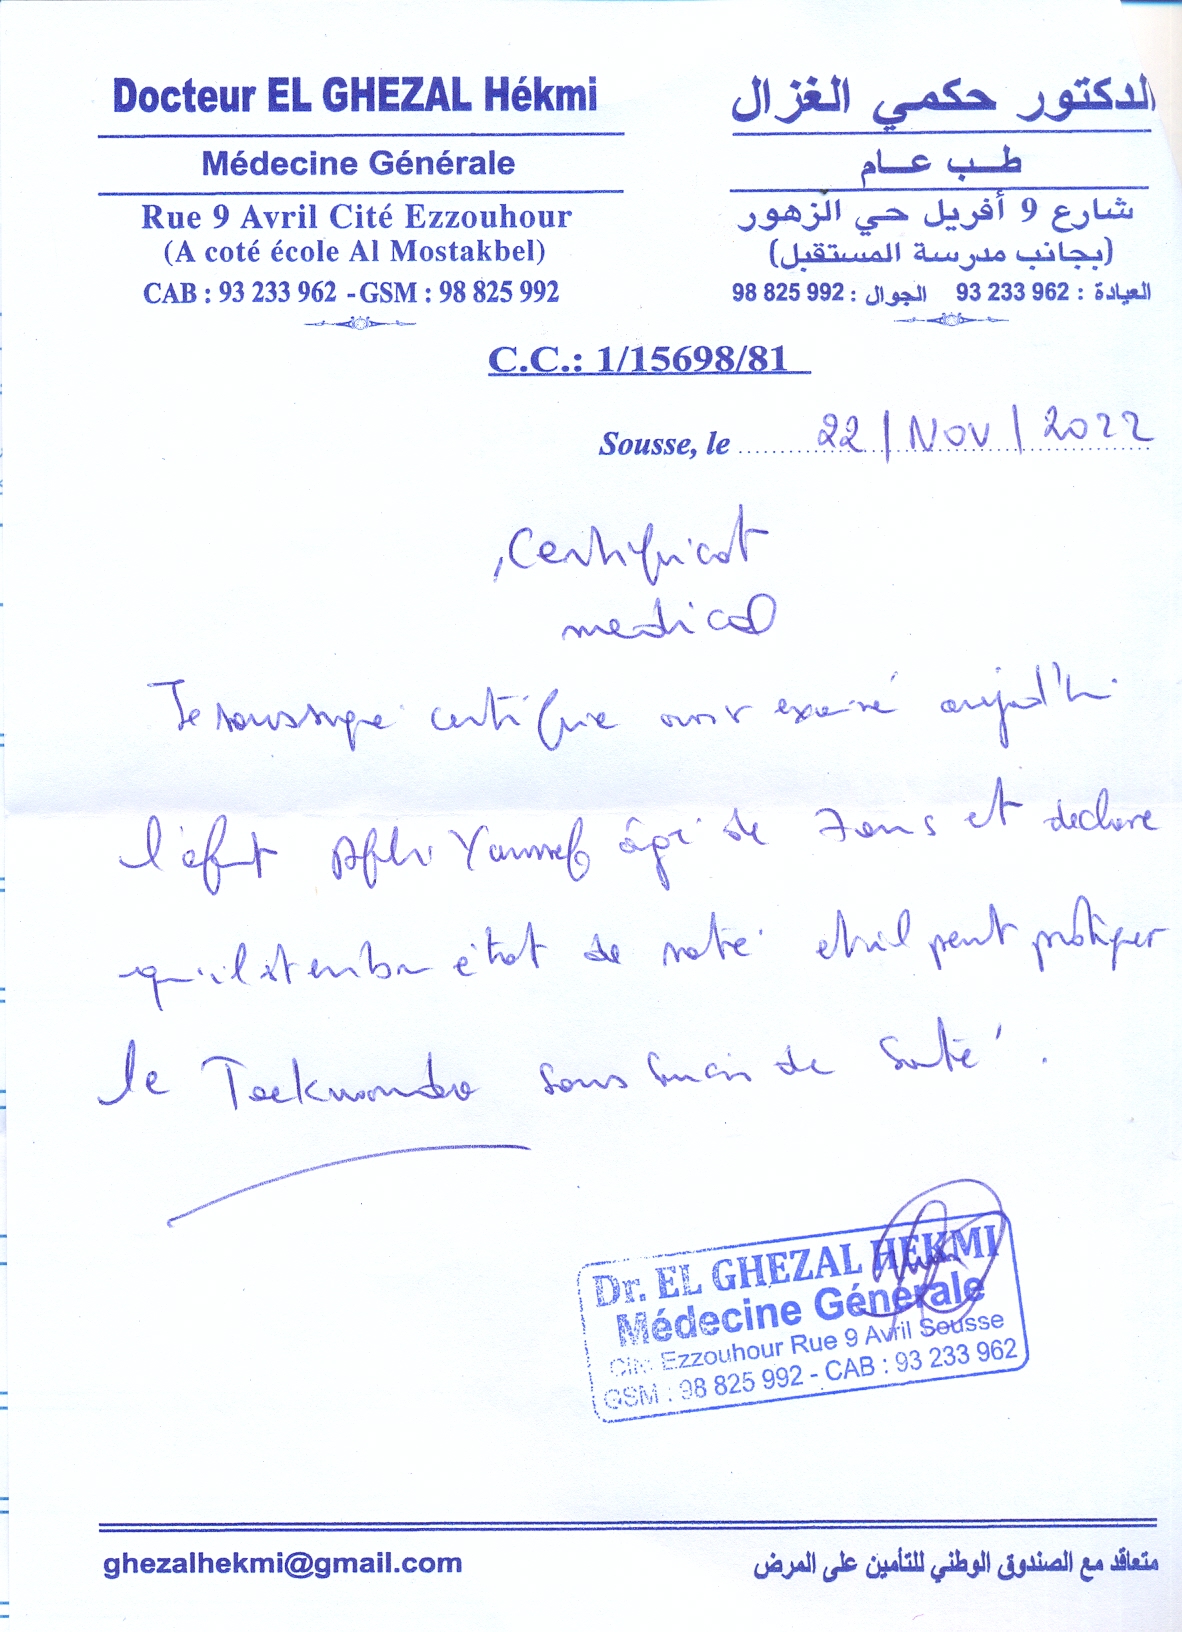 Docteur EL GHEZAL Hékmi
Médecine Générale
Rue 9 Avril Cité Ezzouhour
(A coté école Al Mostakbel)
CAB : 93 233 962 - GSM : 98 825 992
الدكتور حكمي الغزال
طب عام
شارع 9 أفريل حي الزهور
(بجانب مدرسة المستقبل)
العيادة : 93 233 962 الجوال : 98 825 992
C.C.: 1/15698/81
Sousse, le 22 / Nov / 2022
Certificat
medical
Je soussigné certifie avoir examiné aujourd'hui
l'enfant Youssef âgé de 7 ans et declare
qu'il est en bon état de santé et qu'il peut pratiquer
le Taekwondo sans soucis de santé.
Dr. EL GHEZAL HEKMI
Médecine Générale
Cité Ezzouhour Rue 9 Avril Sousse
GSM : 98 825 992 - CAB : 93 233 962
ghezalhekmi@gmail.com
متعاقد مع الصندوق الوطني للتأمين على المرض